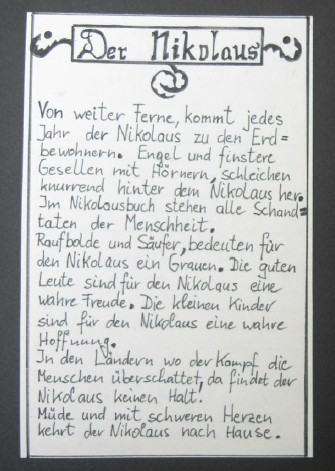 Der Nikolaus
Von weiter Ferne, kommt jedes
Jahr der Nikolaus zu den Erd=
bewohnern. Engel und finstere
Gesellen mit Hörnern, schleichen
knurrend hinter dem Nikolaus her.
Im Nikolausbuch stehen alle Schand=
taten der Menschheit.
Raufbolde und Säufer, bedeuten für
den Nikolaus ein Grauen. Die guten
Leute sind für den Nikolaus eine
wahre Freude. Die kleinen Kinder
sind für den Nikolaus eine wahre
Hoffnung.
In den Ländern wo der Kampf die
Menschen überschattet, da findet der
Nikolaus keinen Halt.
Müde und mit schweren Herzen
kehrt der Nikolaus nach Hause.